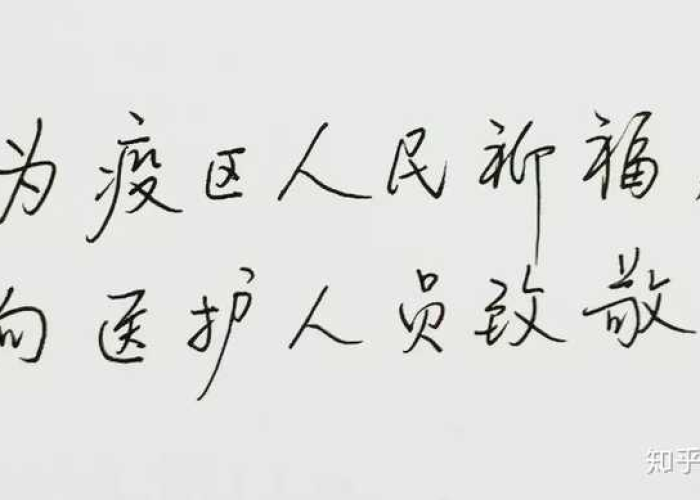 为疫区人民祈福
向医护人员致敬
知乎